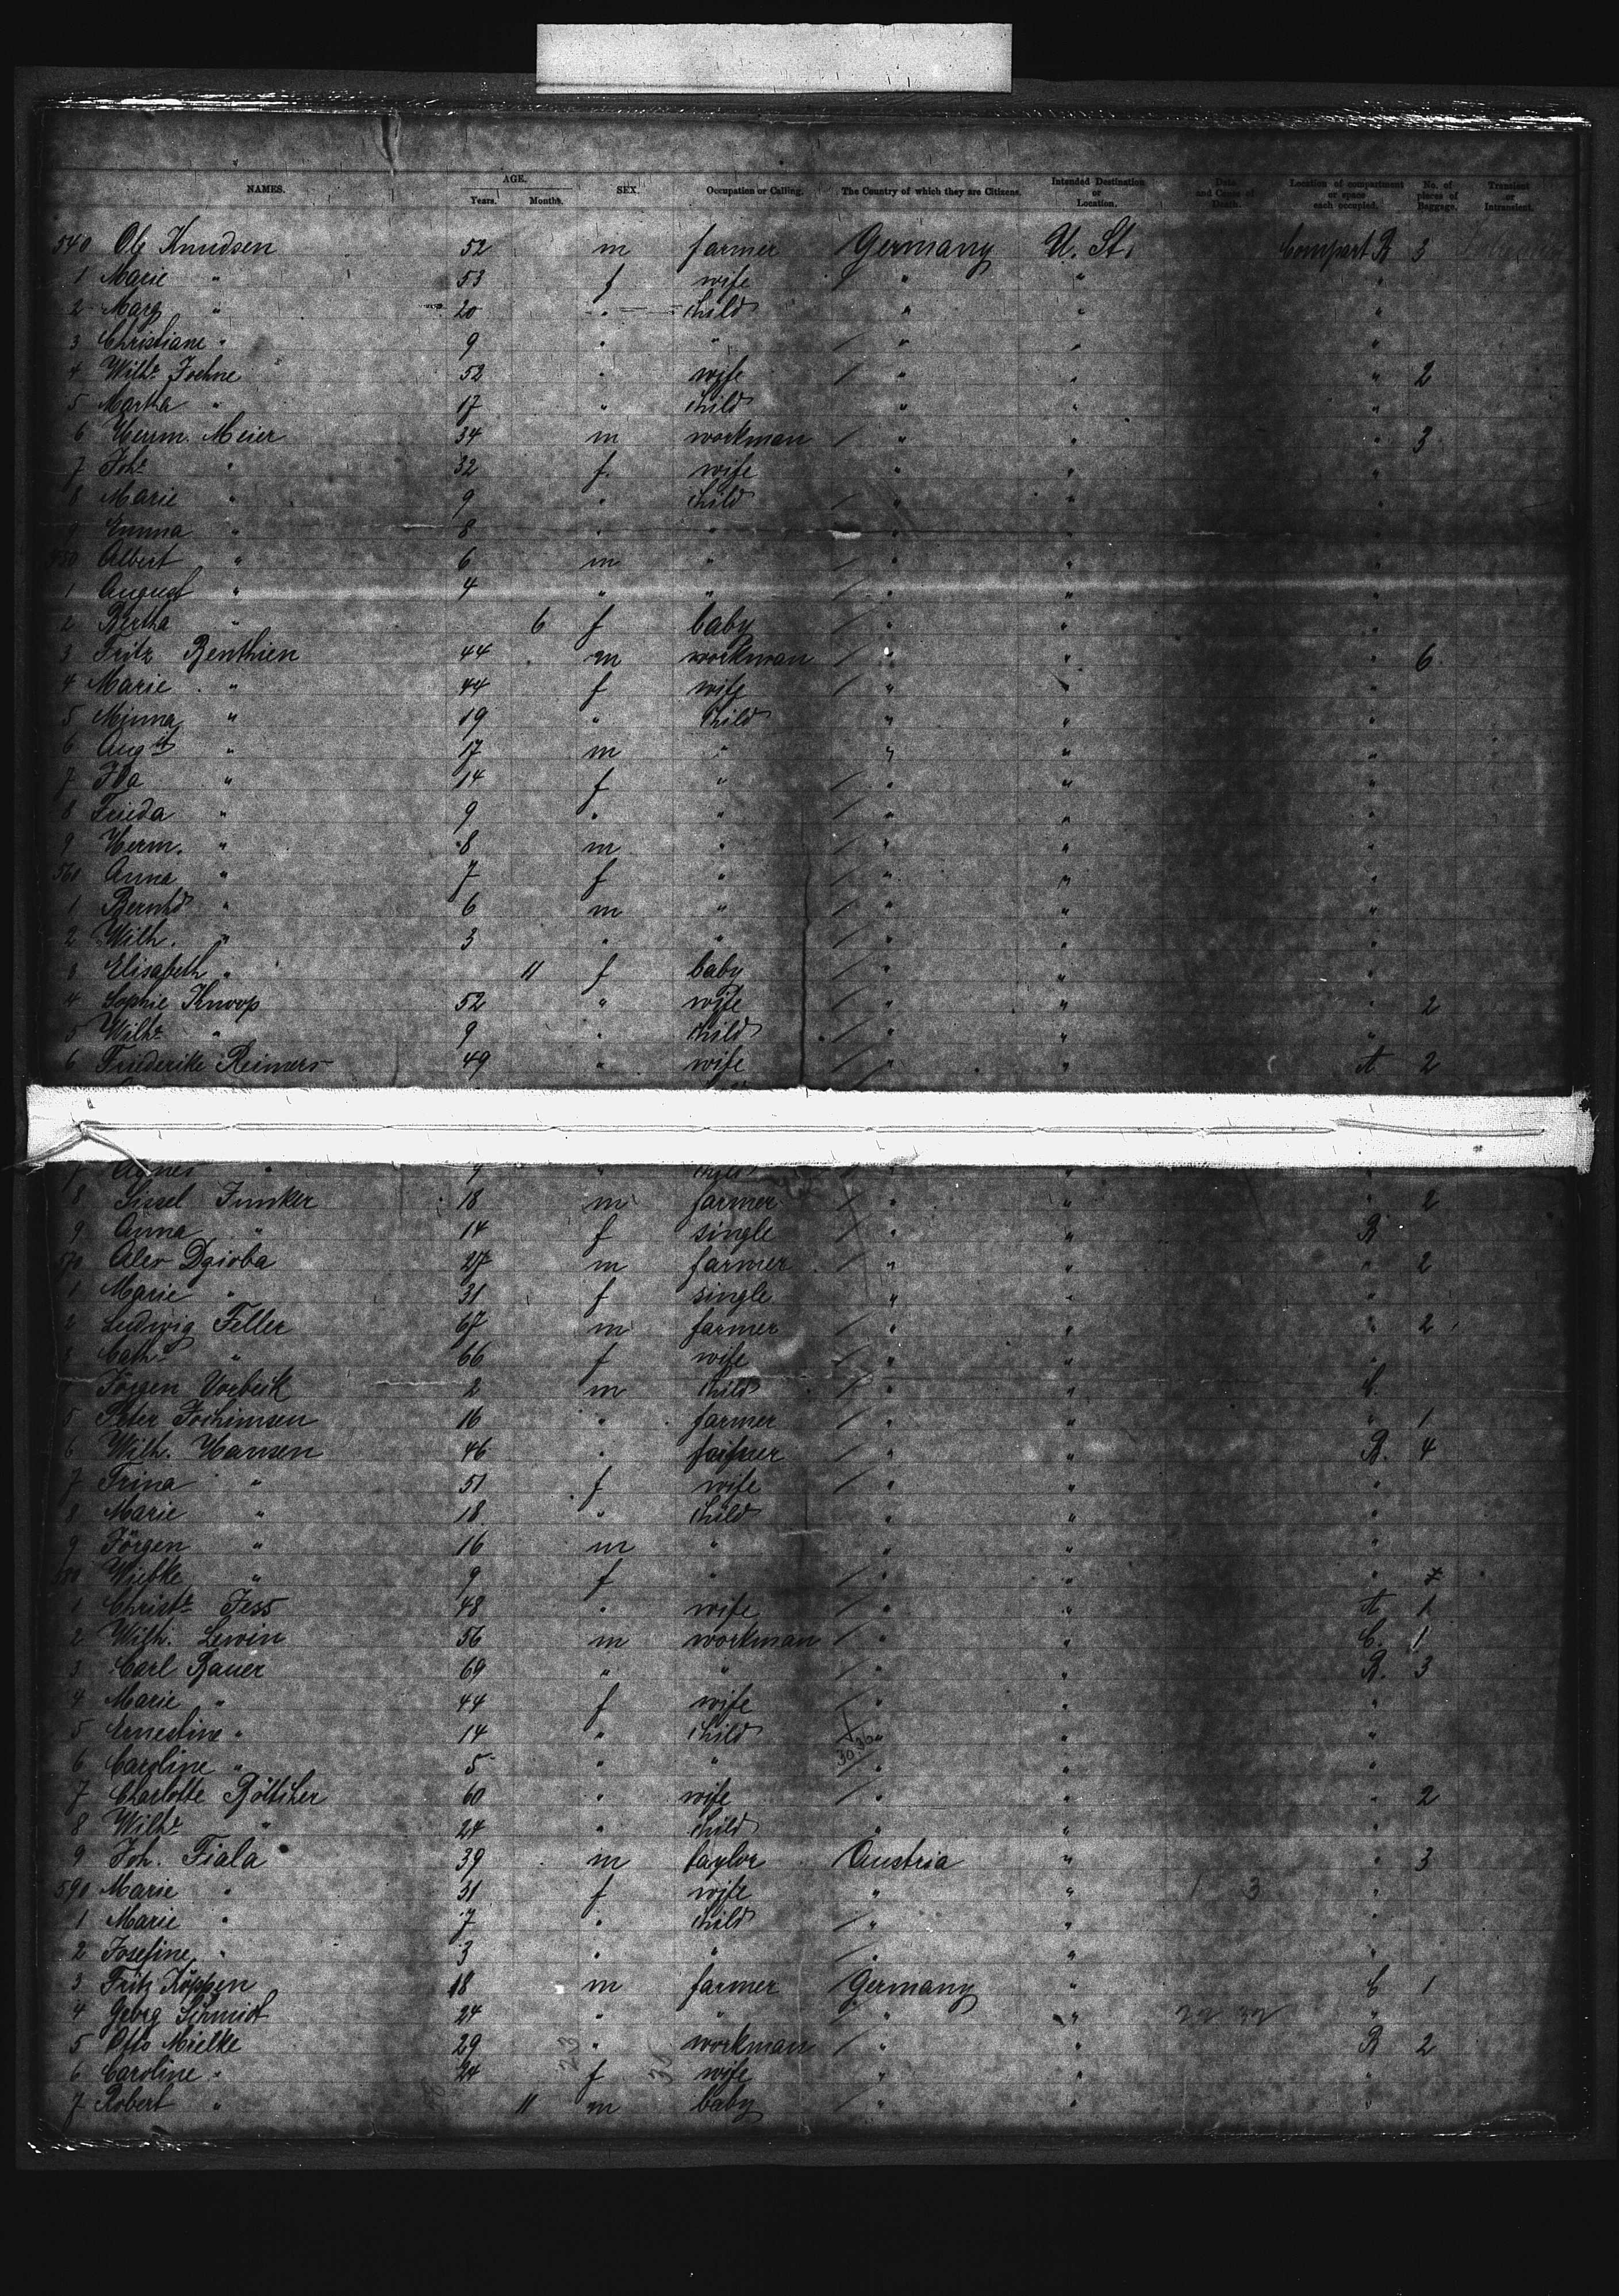 NAMES. AGE. Years. Months. SEX. Occupation or Calling. The Country of which they are Citizens. Intended Destination or Location. Date and Cause of Death. Location of compartment or space each occupied. No. of pieces of Baggage. Transient or Intransient.
540 Ole Knudsen 52 m farmer Germany U. St. Compart B 3
1 Marie " 53 f wife " " "
2 Marg " 20 " child " " "
3 Christiane " 9 " " / " " "
4 Wilhe Joehne 52 " wife / " " " 2
5 Martha " 17 " child " " "
6 Herm. Meier 34 m workman / " " " 3
7 Johe " 32 f. wife " " "
8 Marie " 9 " child / " " "
9 Emma " 8 " " " " "
550 Albert " 6 m " / " " "
1 August " 4 " " / " " "
2 Bertha " 6 f baby / " " "
3 Fritz Benthien 44 m workman / " " " 6
4 Marie " 44 f wife / " " "
5 Minna " 19 " child " " "
6 Augst " 17 m " " " "
7 Ida " 14 f " / " " "
8 Frieda " 9 " " / " " "
9 Herm. " 8 m " / " " "
560 Anna " 7 f " / " " "
1 Bernhd " 6 m " / " " "
2 Wilh. " 3 " " / " " "
3 Elisabeth " 11 f baby / " " "
4 Sophie Knoop 52 " wife / " " " 2
5 Wilhe " 9 " child / " " "
6 Friederike Reimers 49 " wife / " " A 2
7 Agnes " 9 " child / " " "
8 Sissel Junker 18 m farmer / " " " 2
9 Anna " 14 f single / " " B
570 Alex Dzioba 27 m farmer / " " " 2
1 Marie " 31 f single " " "
2 Ludwig Feller 67 m farmer / " " " 2
3 Cathe " 66 f wife / " " "
Jörgen Vorbeck 2 m child / " " C.
5 Peter Jochimsen 16 " farmer / " " " 1
6 Wilh. Hansen 46 " farmer / " " B. 4
7 Trina " 51 f wife / " " "
8 Marie " 18 " child " " "
9 Jörgen " 16 m " " " "
580 Wiebke " 9 f " / " " "
1 Christe Jess 48 " wife / " " A 1
2 Wilh. Lewin 56 m workman / " " C. 1
3 Carl Bauer 69 " " / " " B. 3
4 Marie " 44 f wife / " " "
5 Ernestine " 14 " child " " "
6 Caroline " 5 " " / " " "
7 Charlotte Böttcher 60 " wife / " " " 2
8 Wilhe " 24 " child " " "
9 Joh. Fiala 39 m taylor Austria " " 3
590 Marie " 31 f wife " " 1 3 "
1 Marie " 7 " child / " " "
2 Josefine " 3 " " / " " "
3 Fritz Köppen 18 m farmer Germany " C 1
4 Georg Schmidt 24 " " / " " "
5 Otto Mielke 29 " workman / " " B 2
6 Caroline " 24 f wife " " "
7 Robert " 11 m baby / " " "